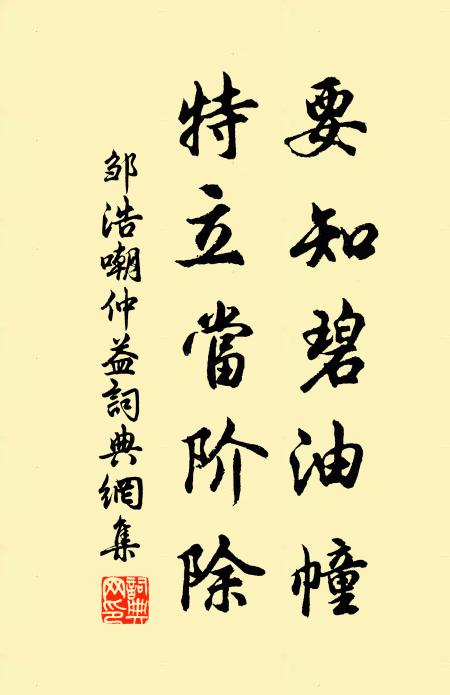 要知碧油幢
特立當阶除
邹浩嘲仲益詞典網集
詞典